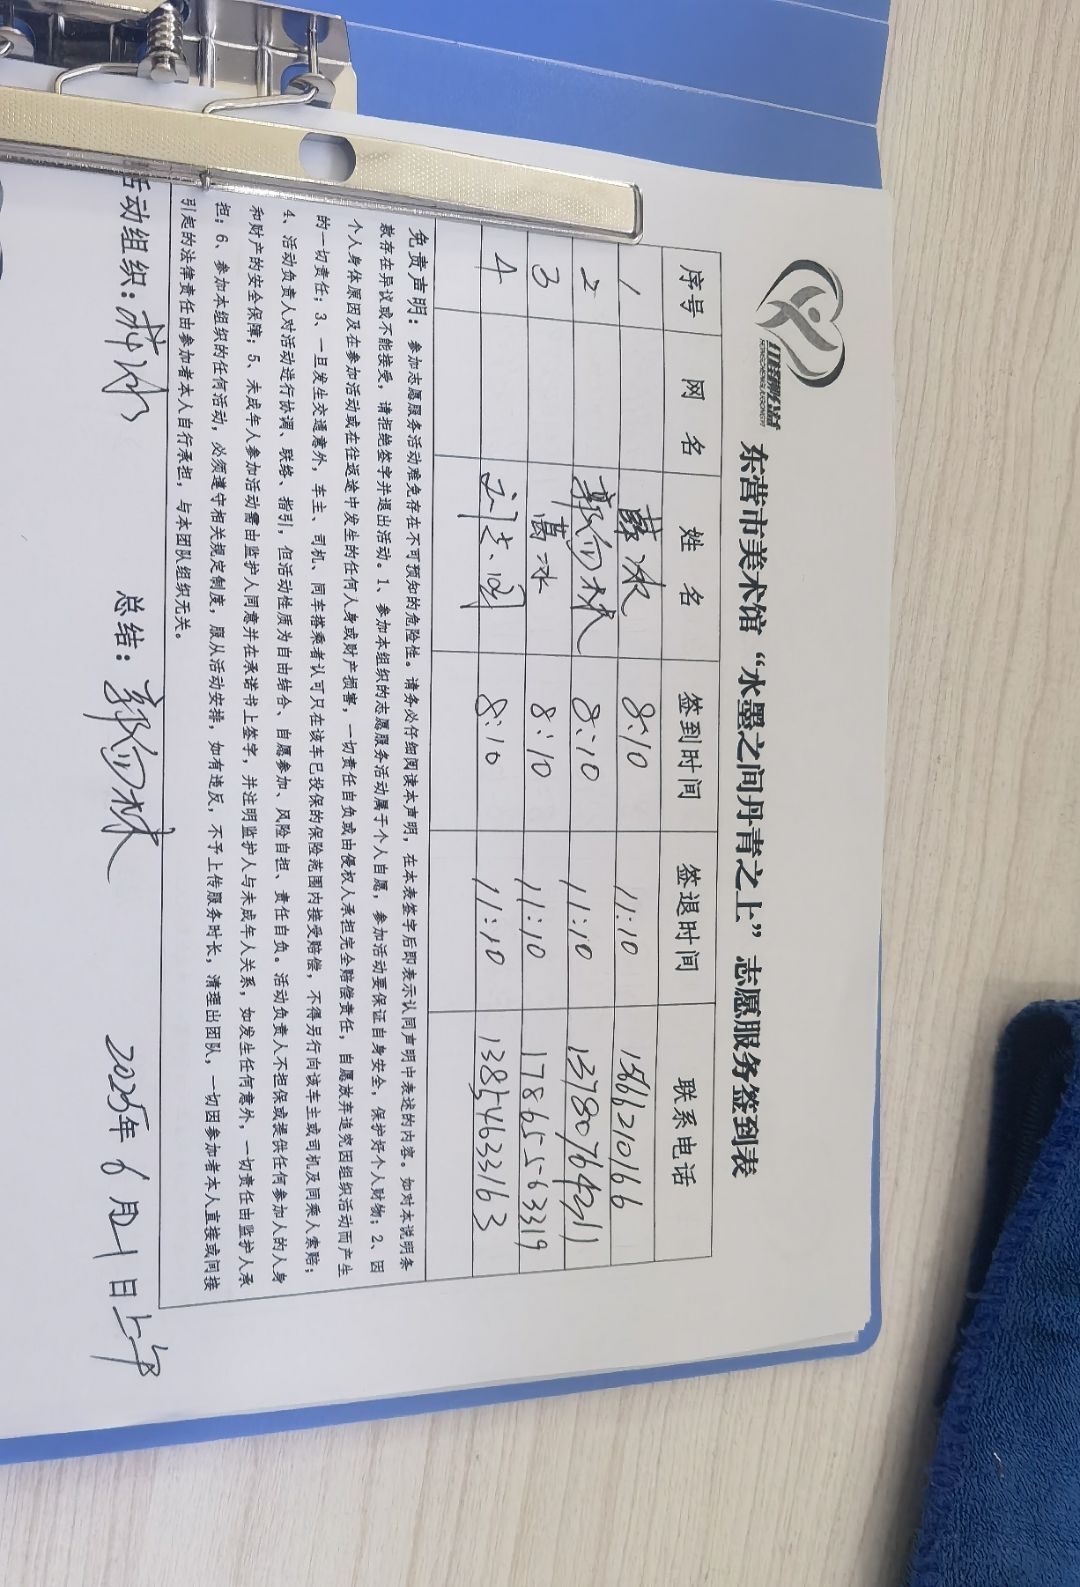 东营市美术馆“水墨之间丹青之上”志愿服务签到表
序号 网名 姓名 签到时间 签退时间 联系电话
1 薛冰 8:10 11:10 1566210166
2 8:10 11:10
3 葛冰 8:10 11:10 17865563319
4 8:10 11:10 13854633163
免责声明：参加志愿服务活动难免存在不可预知的危险性。请务必仔细阅读本声明，在本表签字后即表示认同声明中表述的内容。如对本说明条
款存在异议或不能接受，请拒绝签字并退出活动。1、参加本组织的志愿服务活动属于个人自愿，参加活动要保证自身安全，保护好个人财物；2、因
个人身体原因及在参加活动或在往返途中发生的任何人身或财产损害，一切责任自负或由侵权人承担完全赔偿责任，自愿放弃追究因组织活动而产生
的一切责任；3、一旦发生交通意外，车主、司机、同车搭乘者认可只在该车已投保的保险范围内接受赔偿，不得另行向该车主或司机及同乘人索赔；
4、活动负责人对活动进行协调、联络、指引，但活动性质为自由结合、自愿参加、风险自担、责任自负。活动负责人不担保或提供任何参加人的人身
和财产的安全保障；5、未成年人参加活动需由监护人同意并在承诺书上签字，并注明监护人与未成年人关系，如发生任何意外，一切责任由监护人承
担；6、参加本组织的任何活动，必须遵守相关规定制度，服从活动安排，如有违反，不予上传服务时长，清理出团队，一切因参加者本人直接或间接
引起的法律责任由参加者本人自行承担，与本团队组织无关。
活动组织： 总结： 2025年6月21日上午